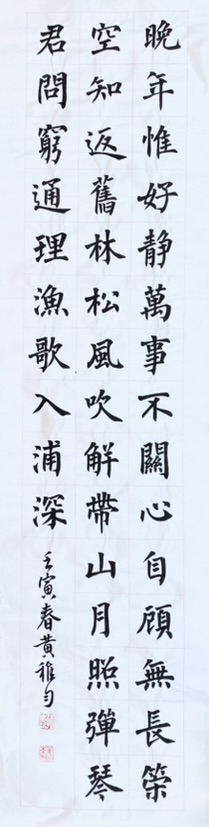 晚年惟好靜萬事不關心自顧無長策
空知返舊林松風吹解帶山月照彈琴
君問窮通理漁歌入浦深
壬寅春黃雅勻